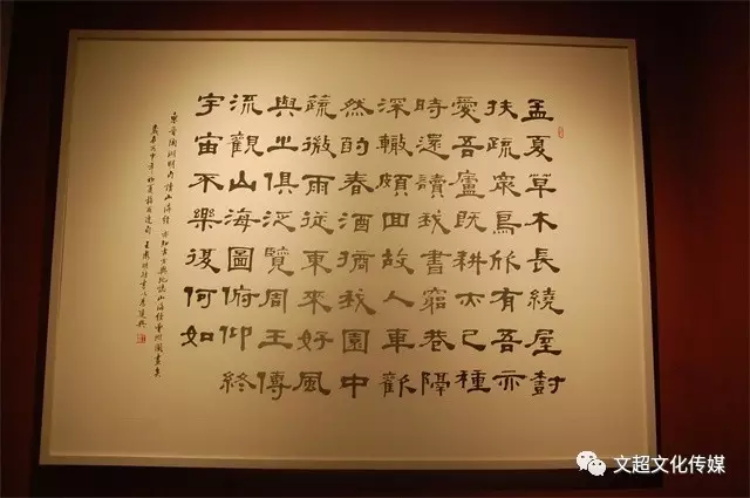 孟夏草木長繞屋尌
扶疏衆鳥欣有吾亦
愛吾廬既耕亦已種
時還讀我書窮巷隔
深轍頗回故人車歡
然酌春酒摘我園中
蔬微雨從東來好風
與之俱汎覽周王傳
流觀山海圖俯仰終
宇宙不樂復何如
東晉陶淵明有讀山海經 山海經當附圖畫矣
文超文化传媒